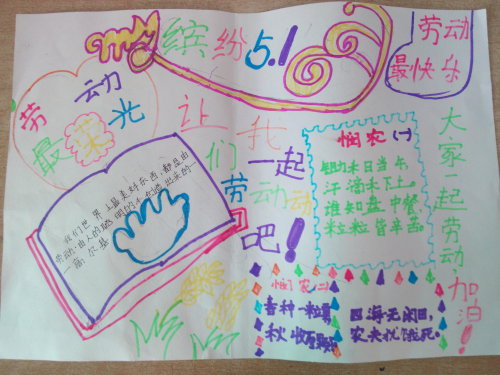 缤纷5.1
劳动
最快乐
劳动
最荣光
让我们一起
劳动动
吧!
大家一起劳动,加油!
悯农(一)
锄禾日当午,
汗滴禾下土。
谁知盘中餐,
粒粒皆辛苦。
悯农(二)
春种一粒粟
秋收万颗
四海无闲田,
农夫犹饿死。
我们世界上最美好东西,都是由
劳动、由人的聪明的手创造出来的——